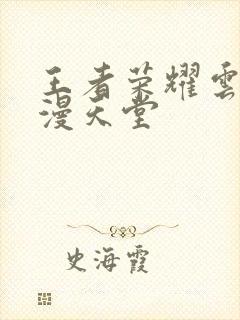 王者荣耀雲
漫天堂
史海霞